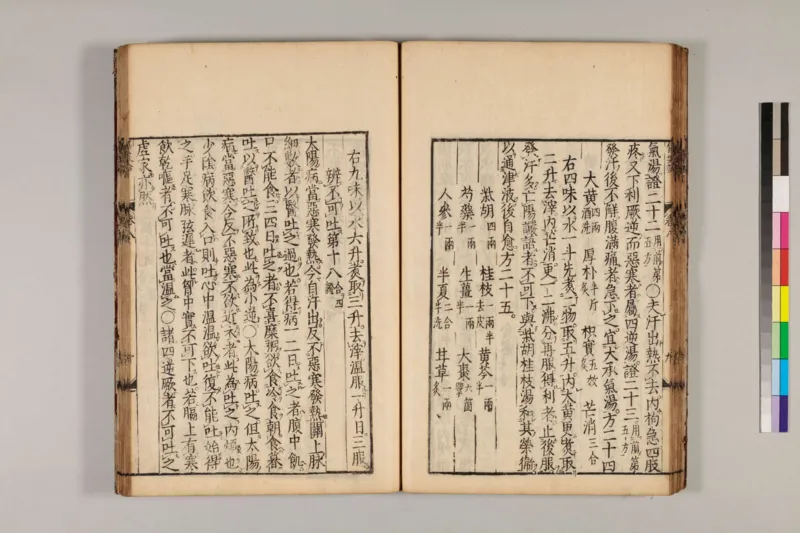 氣湯證二十二用前第五方○夫汗出熱不去内拘急四肢
疼又下利厥逆而惡寒者屬四逆湯證二十三用前第五方
發汗後不解腹滿痛者急下之宜大承氣湯方二十四
大黄四兩酒洗 厚朴半斤炙 枳實五枚炙 芒消三合
右四味以水一斗先煮二物取五升内大黄更煮取
二升去滓内芒消更一二沸分再服得利者止後服
發汗多亡陽讝語者不可下與柴胡桂枝湯和其榮衛
以通津液後自愈方二十五
柴胡四兩 桂枝一兩半去皮 黄芩一兩半
芍藥一兩半 生薑一兩半 大棗六箇擘
人參一兩半 半夏二合半洗 甘草一兩炙
右九味以水六升煮取三升去滓温服一升日三服
辨不可吐第十八合四證
太陽病當惡寒發熱今自汗出反不惡寒發熱關上脉
細數者以醫吐之過也若得病一二日吐之者腹中飢
口不能食三四日吐之者不喜糜粥欲食冷食朝食暮
吐以醫吐之所致也此為小逆○太陽病吐之但太陽
病當惡寒今反不惡寒不欲近衣者此為吐之内煩也
少陰病飲食入口則吐心中温温欲吐復不能吐始得
之手足寒脉弦遲者此胷中實不可下也若膈上有寒
飲乾嘔者不可吐也當温之○諸四逆厥者不可吐之
虚家亦然